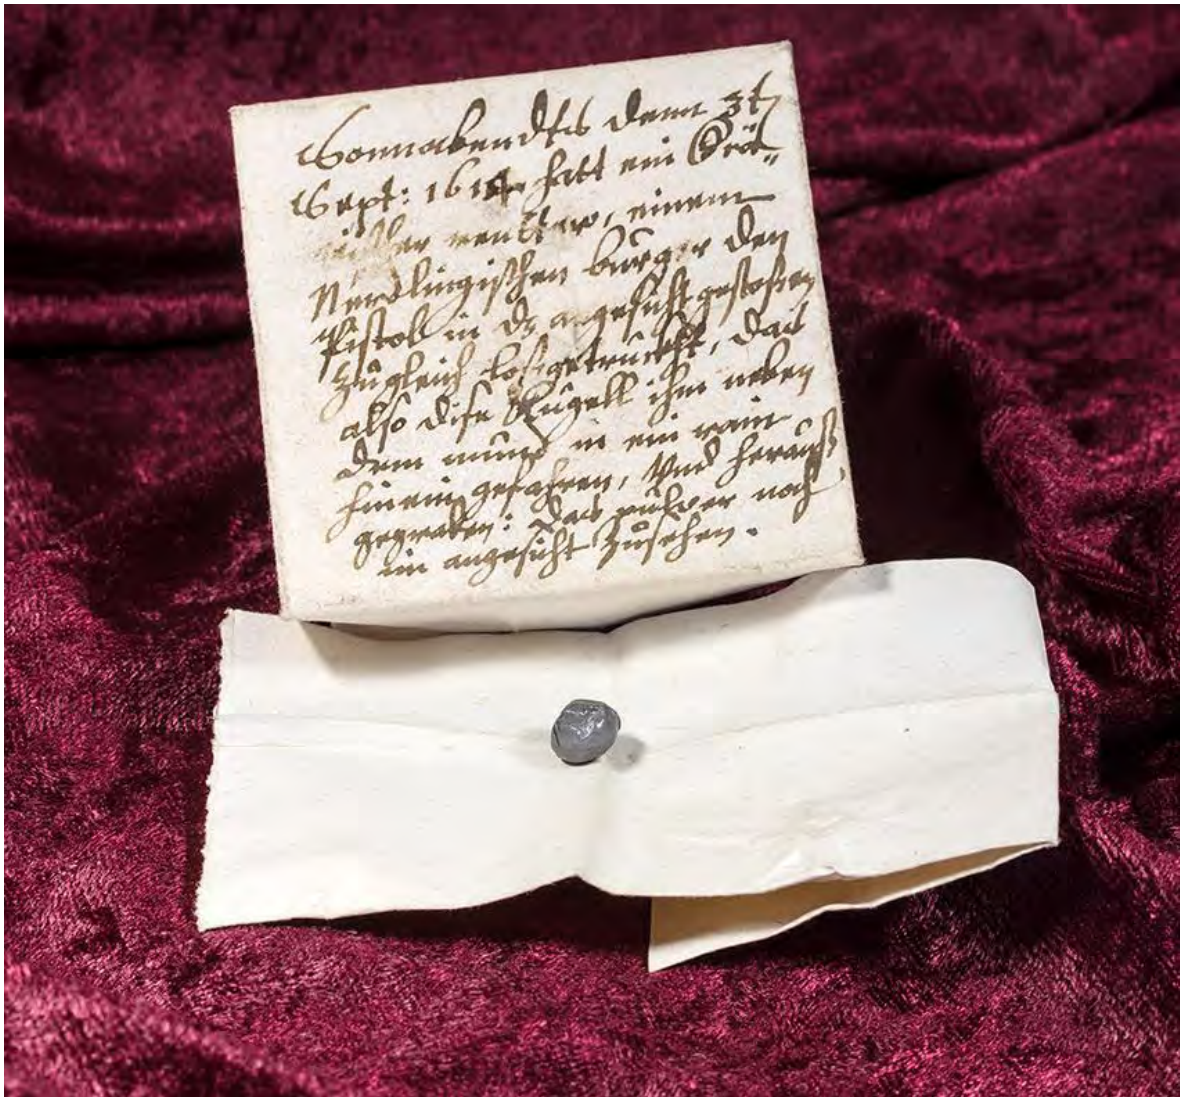 Sonnabendts denn 3t
Sept: 1614 hatt ein
reutter, einem
Nördlingischen burger den
Pistol in dz angesicht gestossen
Zugleich losgetruckht, das
also dise Kugell ihm neben
dem mund in ein
hinein gefahren, Vnd herauß
gegraben: das pulver noch
im angesicht Zusehen.